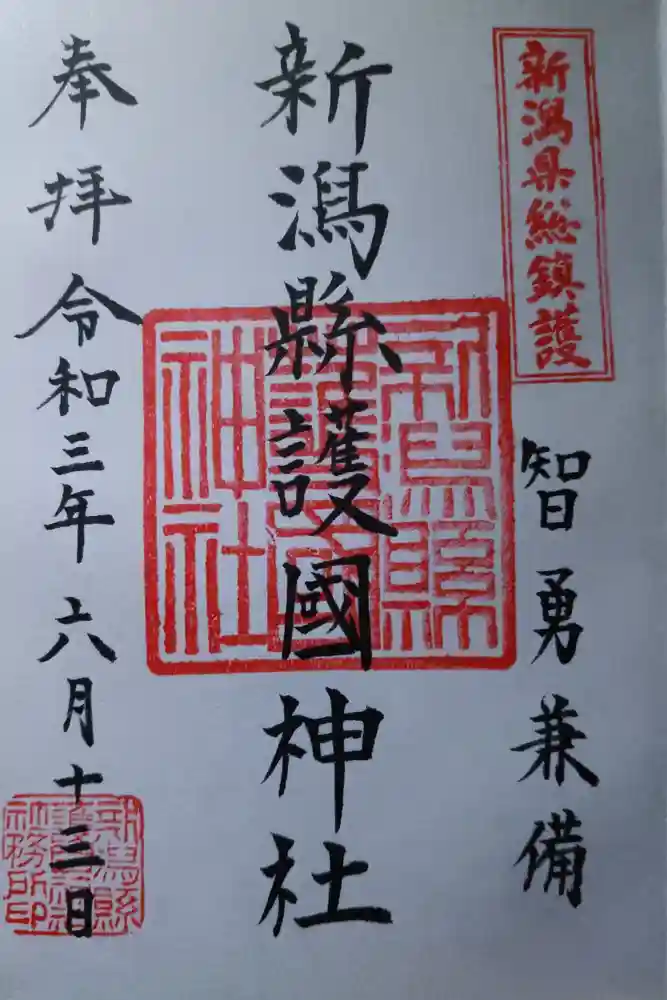 新潟県総鎮護
智勇兼備
新潟縣護國神社
新潟縣
護國
神社
奉拝 令和三年六月十三日
新潟縣
護國神社
社務所印